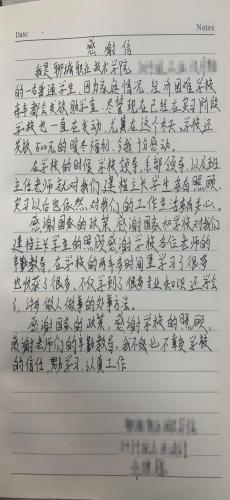 Date: Notes
感谢信
我是聊城职业技术学院
的一名普通学生,因为家庭情况,经济困难学校
每年都会发放助学金,尽管现在已经在实习阶段
学校也一直在发动,尤其在这个冬天,学校还
发放500元的暖冬福利,令我十分感动。
在学校的时候学校领导,系部领导,以及班
主任老师就对我们建档立卡学生有有照顾,
实习以后也依然,对我们的工作生活都有关心。
感谢国家的政策,感谢国家和学校对我们
建档立卡学生的照顾感谢学校各位老师的
辛勤教导,在学校的两年多时间里学习了很多
也收获了很多,不仅学到了很多专业知识还学会
了,许多做人做事的处事方法。
感谢国家的政策,感谢学校的照顾,
感谢老师们的辛勤教导,我不会也不辜负学校
的信任 努力学习,认真工作